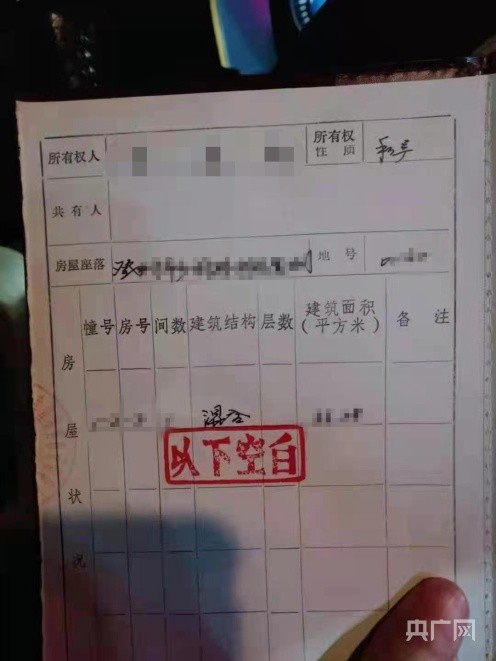 所有权人
所有权
性质
私产
共有人
房屋座落
地号
房屋状况
幢号 房号 间数 建筑结构 层数 建筑面积 备注
(平方米)
混合
以下空白
央广网